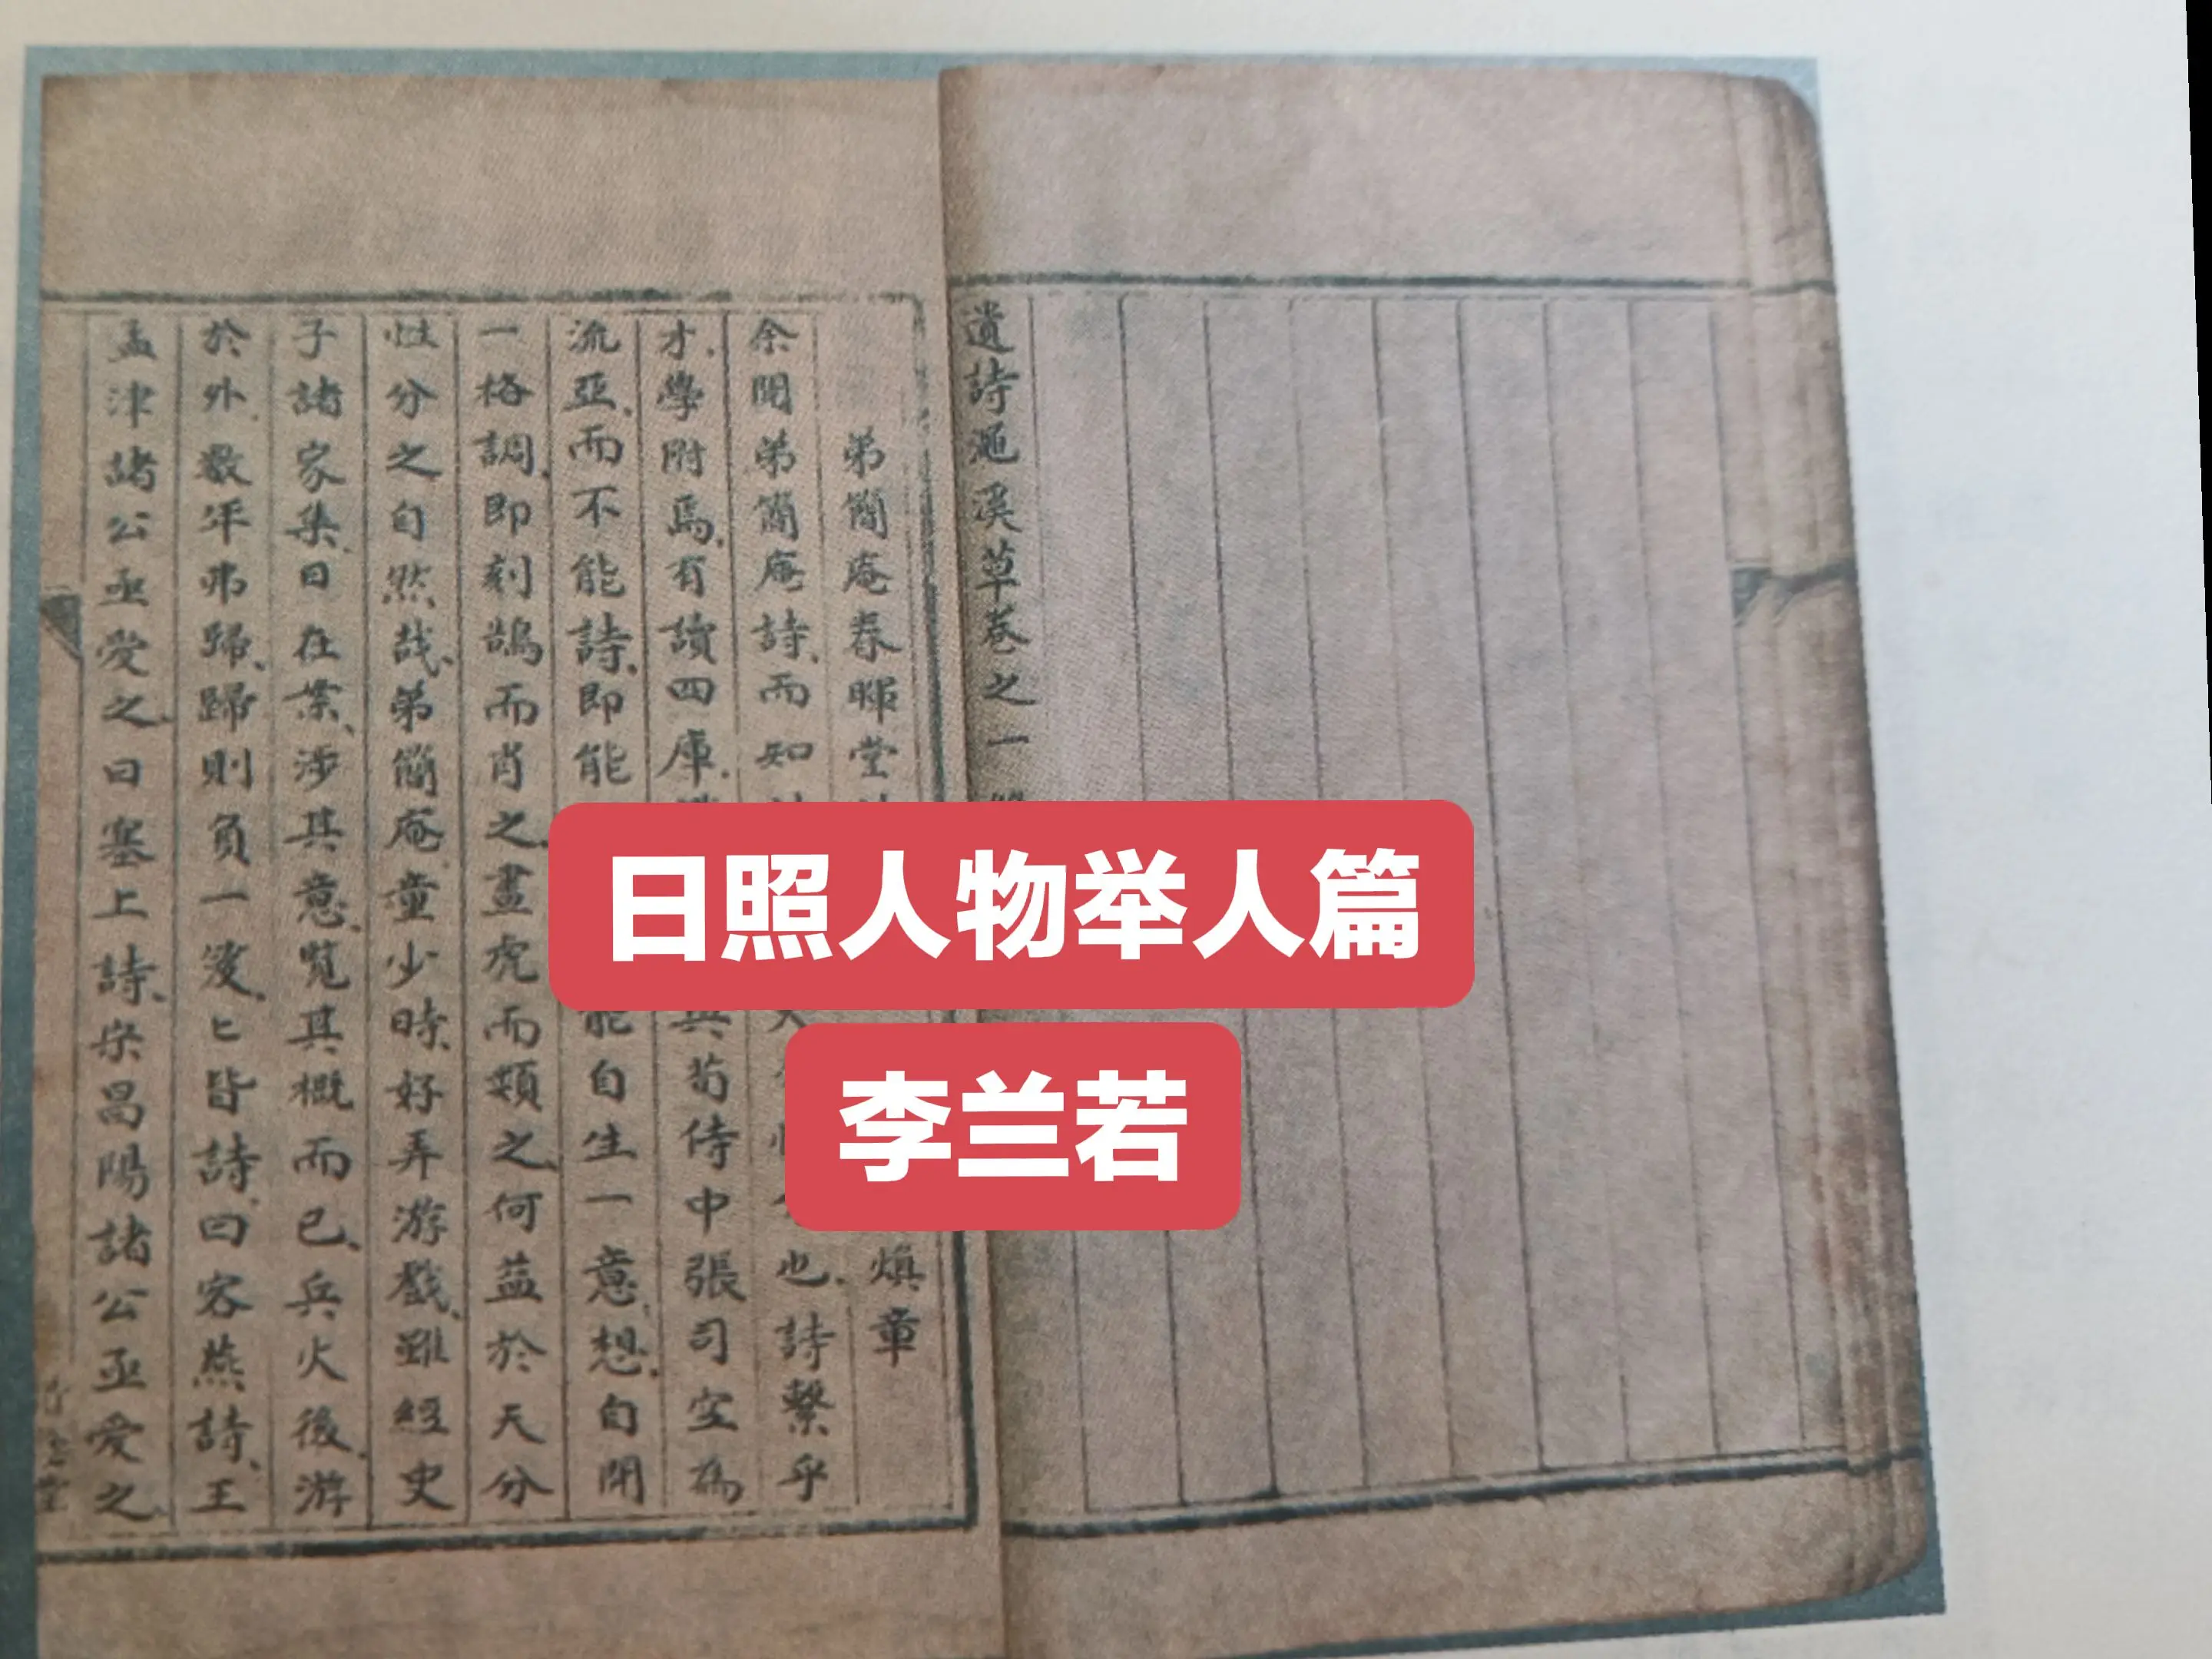 遺詩澠溪草卷之一
弟簡庵春暉堂
煥章
余閱弟簡庵詩、而知
也、詩繫乎
才、學附焉、有讀四庫、
與荀侍中張司空為
流亞、而不能詩、即能
能自生一意、想、自開
一格調、即刻鵠而肖之、畫虎而類之、何益於天分
性分之自然哉、弟簡庵、童少時、好弄游戲、雖經史
子諸家集、日在業、涉其意、覽其概而已、兵火後、游
於外、數年弗歸、歸則負一簏、匕皆詩、曰客燕詩、王
孟津諸公亟愛之、曰塞上詩、宋昌陽諸公亟愛之、
日照人物举人篇
李兰若